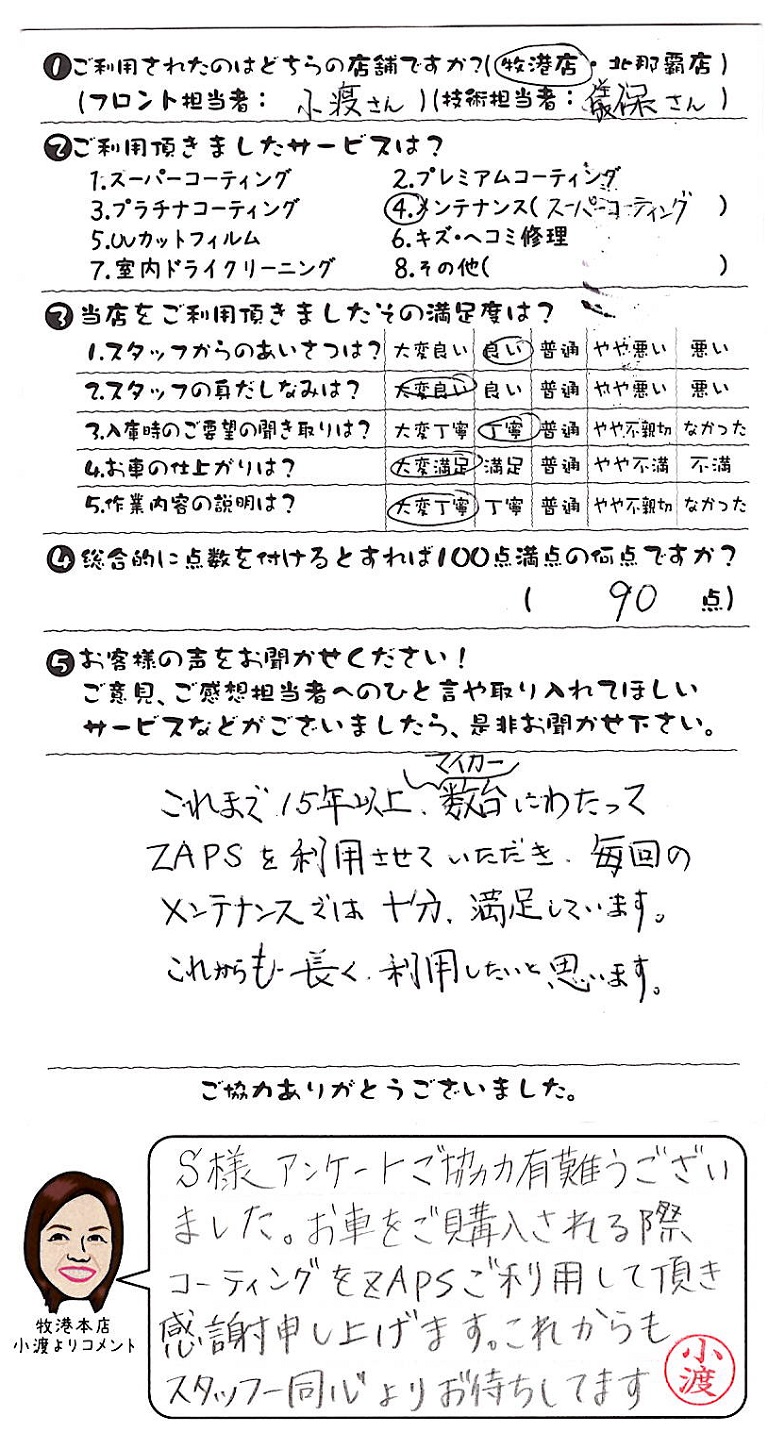 ❶ご利用されたのはどちらの店舗ですか?(牧港店・北那覇店)
(フロント担当者: 小渡さん)(技術担当者: 儀保さん)
❷ご利用頂きましたサービスは?
1.スーパーコーティング 2.プレミアムコーティング
3.プラチナコーティング 4.メンテナンス(スーパーコーティング)
5.UVカットフィルム 6.キズ・ヘコミ修理
7.室内ドライクリーニング 8.その他( )
❸当店をご利用頂きましたその満足度は?
1.スタッフからのあいさつは? 大変良い 良い 普通 やや悪い 悪い
2.スタッフの身だしなみは? 大変良い 良い 普通 やや悪い 悪い
3.入庫時のご要望の聞き取りは? 大変丁寧 丁寧 普通 やや不親切 なかった
4.お車の仕上がりは? 大変満足 満足 普通 やや不満 不満
5.作業内容の説明は? 大変丁寧 丁寧 普通 やや不親切 なかった
❹総合的に点数を付けるとすれば100点満点の何点ですか?
( 90 点)
❺お客様の声をお聞かせください!
ご意見、ご感想担当者へのひと言や取り入れてほしい
サービスなどがございましたら、是非お聞かせ下さい。
マイカー
これまで15年以上、数台にわたって
ZAPSを利用させていただき、毎回の
メンテナンスでは十分、満足しています。
これからも長く、利用したいと思います。
ご協力ありがとうございました。
S様アンケートご協力有難うござい
ました。お車をご購入される際
コーティングをZAPSご利用して頂き
感謝申し上げます。これからも
スタッフ一同心よりお待ちしてます
小渡
牧港本店
小渡よりコメント